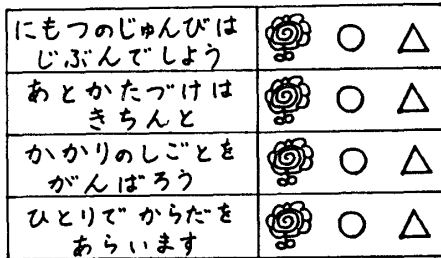 にもつのじゅんびは
じぶんでしよう
あとかたづけは
きちんと
かかりのしごとを
がんばろう
ひとりでからだを
あらいます